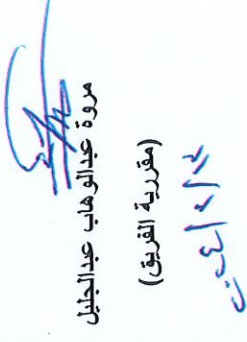 مروة عبدالوهاب عبدالجليل
(مقررية الفريق)